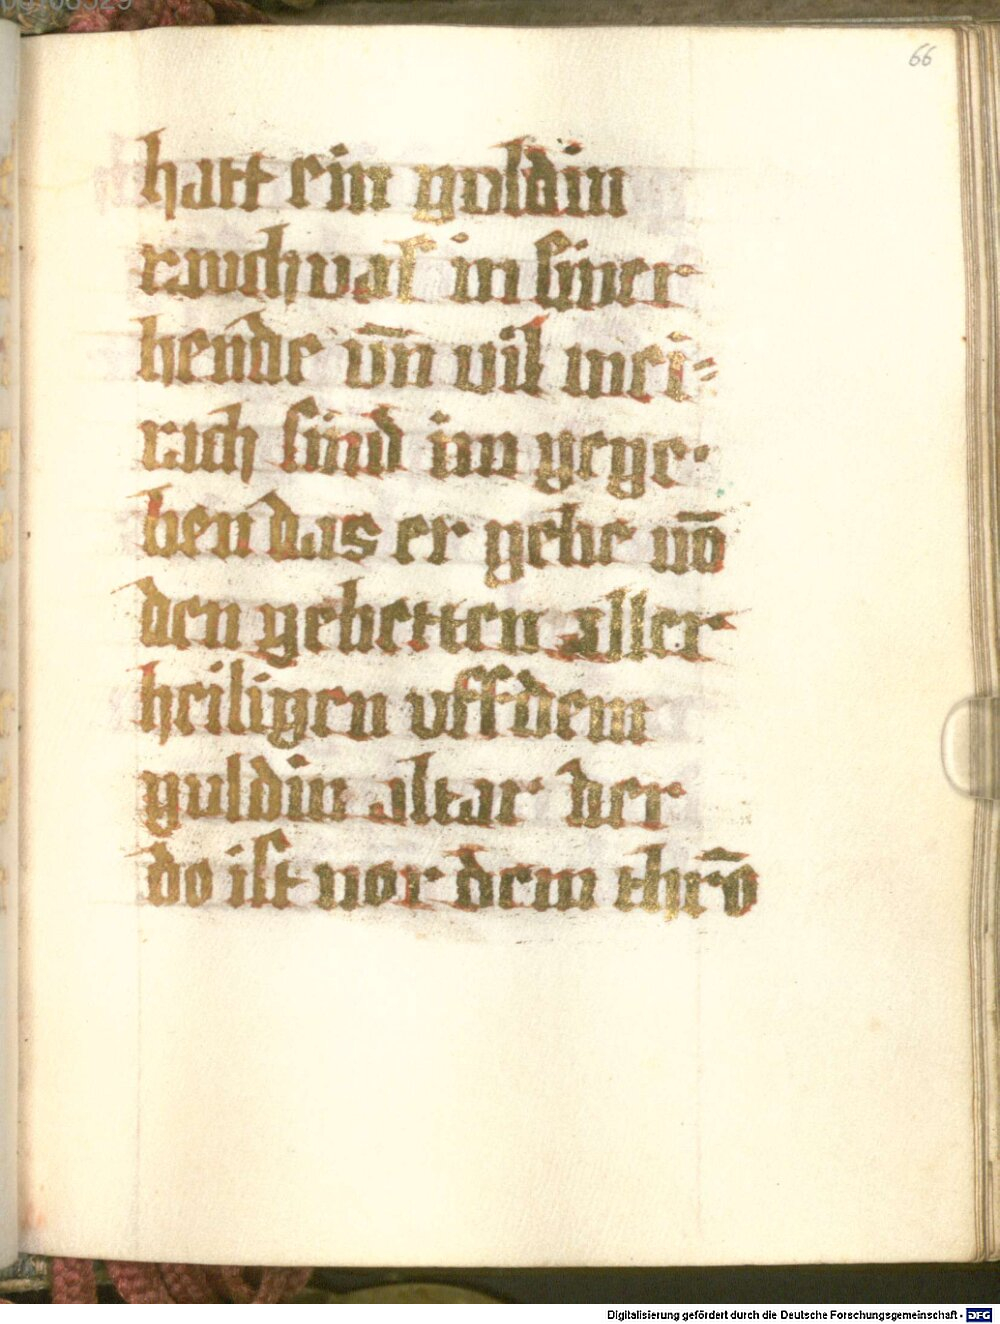 66
hatt ein guldin
rauchvas in siner
hende vn̄ vil wei⸗
rach sind im gege·
ben das er gebe vō
den gebetten aller
heiligen vff dem
guldin altar der
do ist vor dem thrō
Digitalisierung gefördert durch die Deutsche Forschungsgemeinschaft - DFG